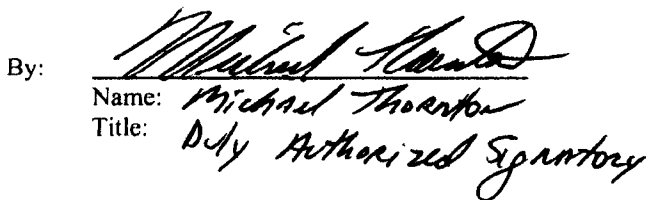 By: Michael Thornton
Name: Michael Thornton
Title: Duly Authorized Signatory